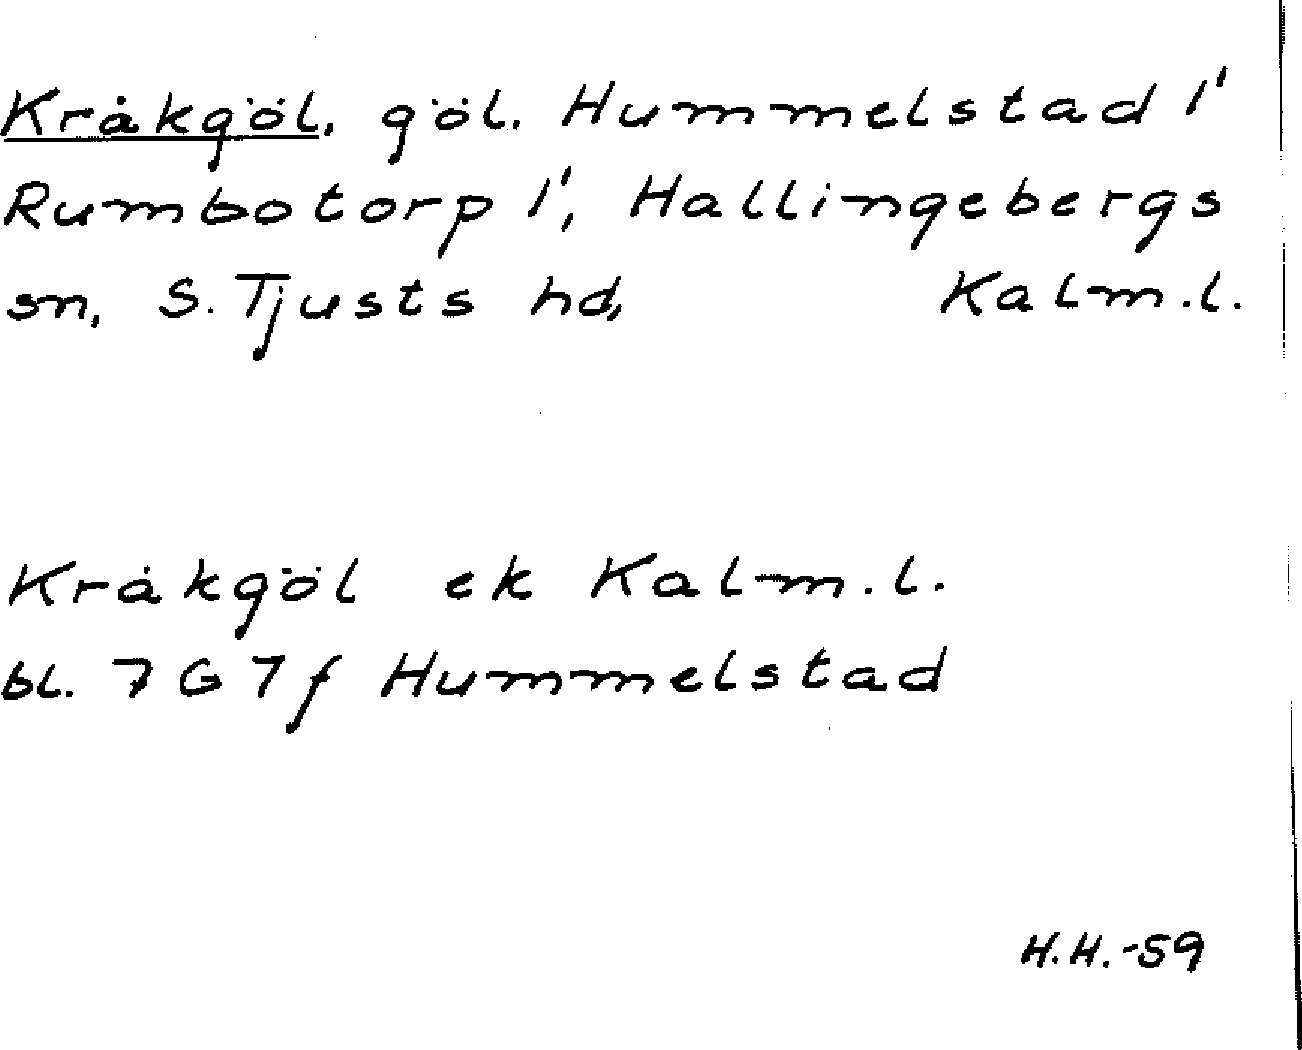 Kråkgöl, göl. Hummelstad 1'
Rumbotorp 1', Hallingebergs
sn, S. Tjusts hd, Kalm.l.
Kråkgöl ek Kalm.l.
bl. 7 G 7 f Hummelstad
H.H.-59